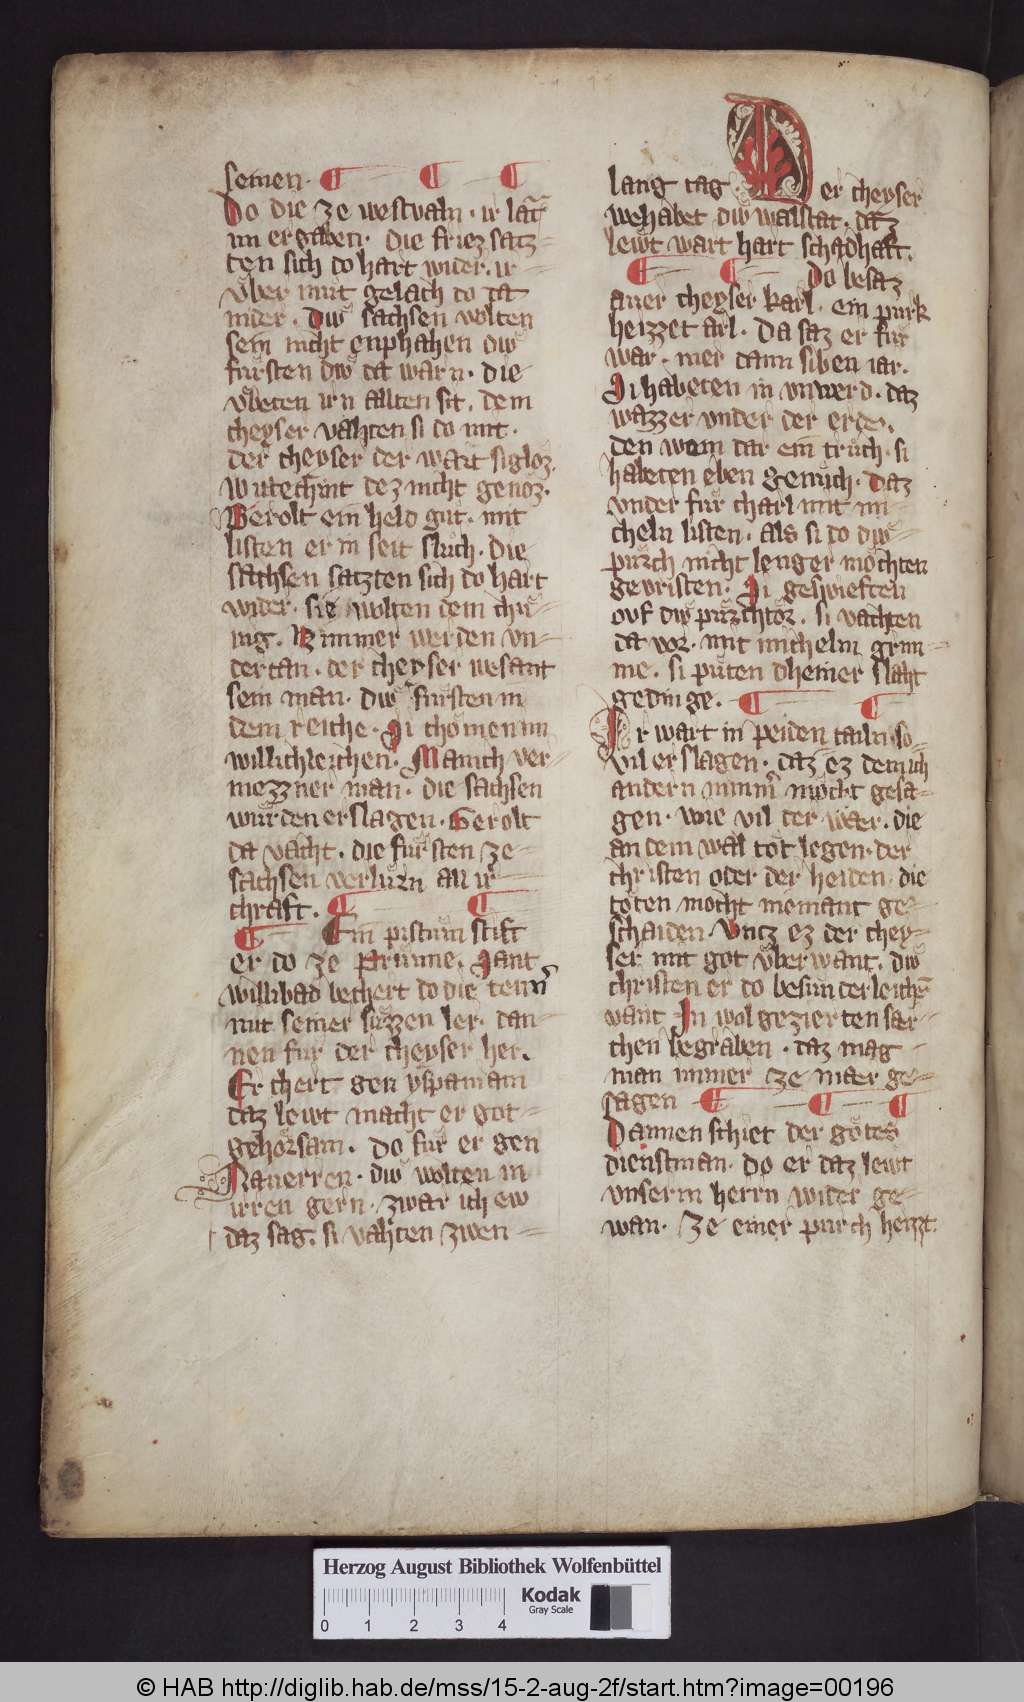 semen.
Do die ze westvaln. ir lant
im ergaben. die friez satz=
ten sich do hart wider. ir
vͤber mͤut gelach do da
nider. diwͤ sachsen wolten
sein nicht enphahen diwͤ
fuͤrsten diwͤ da warn. die
vͤbeten irn allten sit. dem
cheyser vahten si do mit.
der cheyser der wart sigloz.
wutechint dez nicht genoz.
Gerolt ein held gut. mit
listen er in seit sluͦch. die
sachsen satzten sich do hart
wider. sie wolten dem chuͤ=
nig. Nimmer werden vn=
dertan. der cheyser besant
sein man. diwͤ fuͤrsten in
dem reiche. Si chomen im
willichleichen. Manich ver=
mezzner man. die sachsen
wuͤrden erslagen. Gerolt
da vacht. die fuͤrsten ze=
sachsen verlurn all ir
chraft.
Ein pistum stift
er do ze Prunne. Sant
willibad lechert do die
mit seiner suͤzzen ler. dan=
nen fur der cheyser her.
Er chert gen yspaniam
daz lewt macht er got=
gehoͤrsam. do fuͤr er gen
Nauerren. diwͤ wolten in
irren gern. zwar ich ew
daz sag. si vahten zwen=
lang tag. Der cheyser
wehabet diwͤ walstat. daz
lewt wart hart schadhaft.
Do besaz
auer cheyser karl. ein purk
heizzet arl. Da saz er fuͤr
war. mer dann siben iar.
Si habeten in vnwerd. daz
wazzer vnder der erden.
den wein dar ein truͦch. si
habeten eben genuͦch. Daz
vnder fuͦr charl mit mi=
cheln listen. als si do diwͤ=
purch nicht lenger mochten
gevristen. Si geswieften
ouf diwͤ puͤrchtor. si vachten
da vor. mit michelm grim=
me. si puten dheiner slaht
gedinge.
Ir wart in peiden tailn so=
vil erslagen. daz ez dem ich
andern nimmer mocht gesa=
gen. wie vil der waer. die
an dem wal tot legen. der
christen oder der heiden. die
toten mocht niemant ge=
schaiden. Vntz ez der chey=
ser mit got vͤberwant. diwͤ
christen er do besunderleichen
vant In wol gezierten sar=
chen begraben. daz mag
man immer ze maer ge=
sagen
Dannen schiet der gotes
dienstman. do er daz lewt
vnserm herrn wider ge=
wan. ze einer purch heizzt.
Herzog August Bibliothek Wolfenbüttel
0 1 2 3 4
Kodak
Gray Scale
© HAB http://diglib.hab.de/mss/15-2-aug-2f/start.htm?image=00196